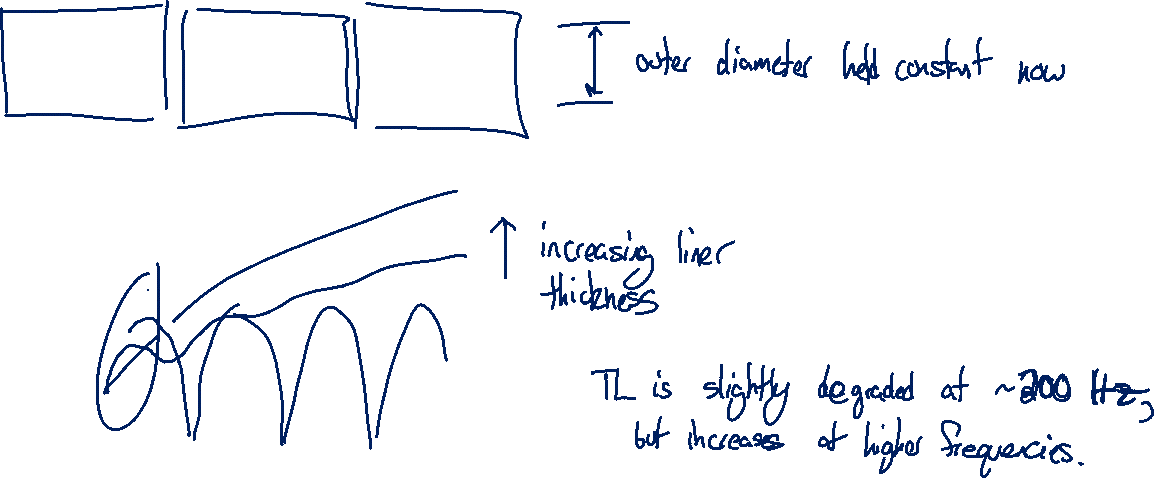 outer diameter held constant now
increasing liner
thickness
TL is slightly degraded at ~200 Hz,
but increases at higher frequencies.